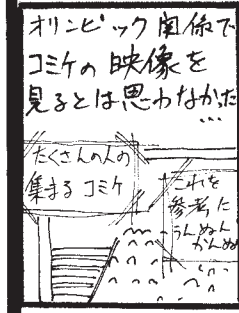 オリンピック関係で
コミケの映像を
見るとは思わなかった
…
たくさんの人の
集まるコミケ
これを
参考に
うんぬん
かんぬん